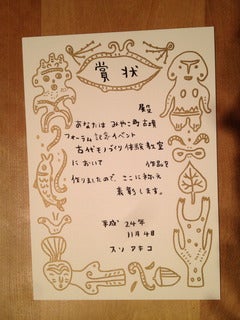 賞状
殿
あなたは みやこ町古墳
フォーラム記念イベント
古代モノづくり体験教室
において 作品を
作りましたので、ここに称え
表彰します。
平成24年
11月4日
スソ アキコ